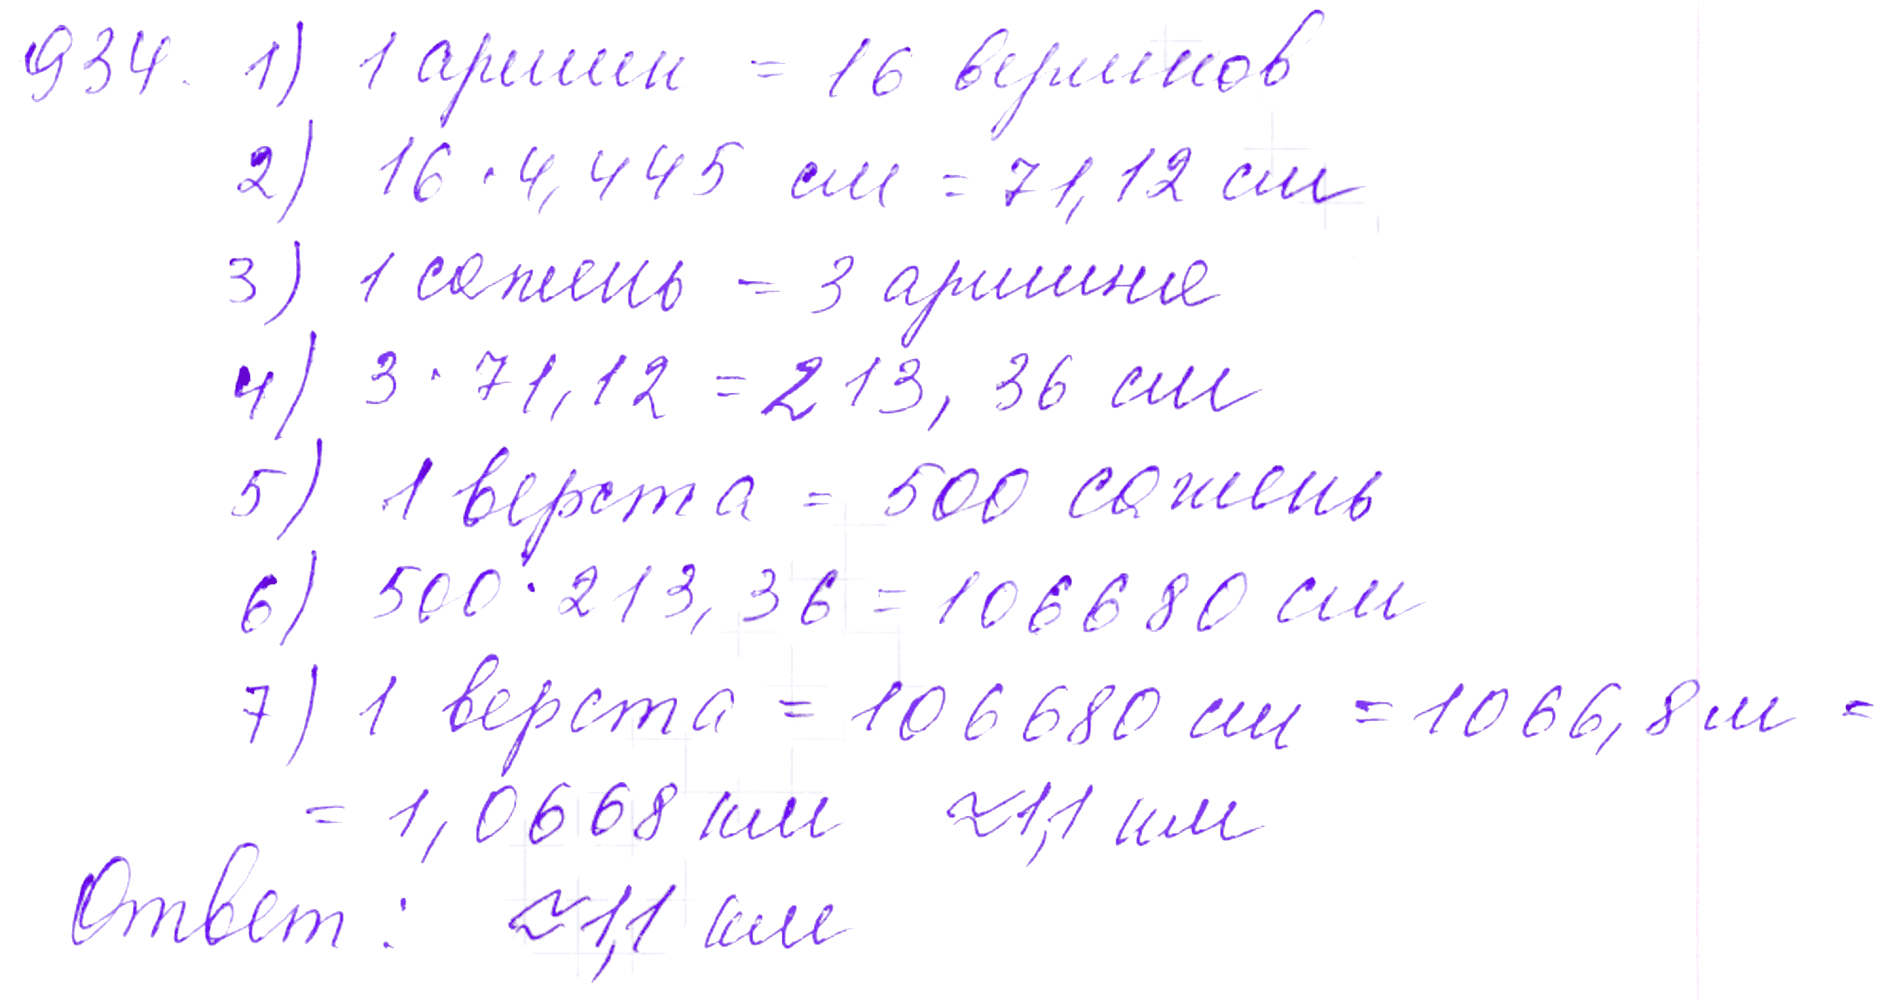 934. 1) 1 аршин = 16 вершков
2) 16 · 4,445 см = 71,12 см
3) 1 сажень = 3 аршина
4) 3 · 71,12 = 213,36 см
5) 1 верста = 500 сажень
6) 500 · 213,36 = 106680 см
7) 1 верста = 106680 см = 1066,8 м =
= 1,0668 км ≈1,1 км
Ответ: ≈1,1 км